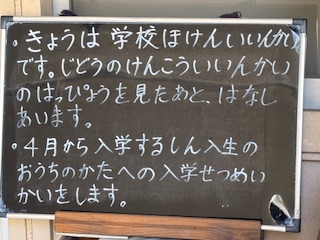 ・きょうは学校ほけんいいんかい
です。じどうのけんこういいんかい
のはっぴょうを見たあと、はなし
あいます。
・4月から入学するしん入生の
おうちのかたへの入学せつめい
かいをします。